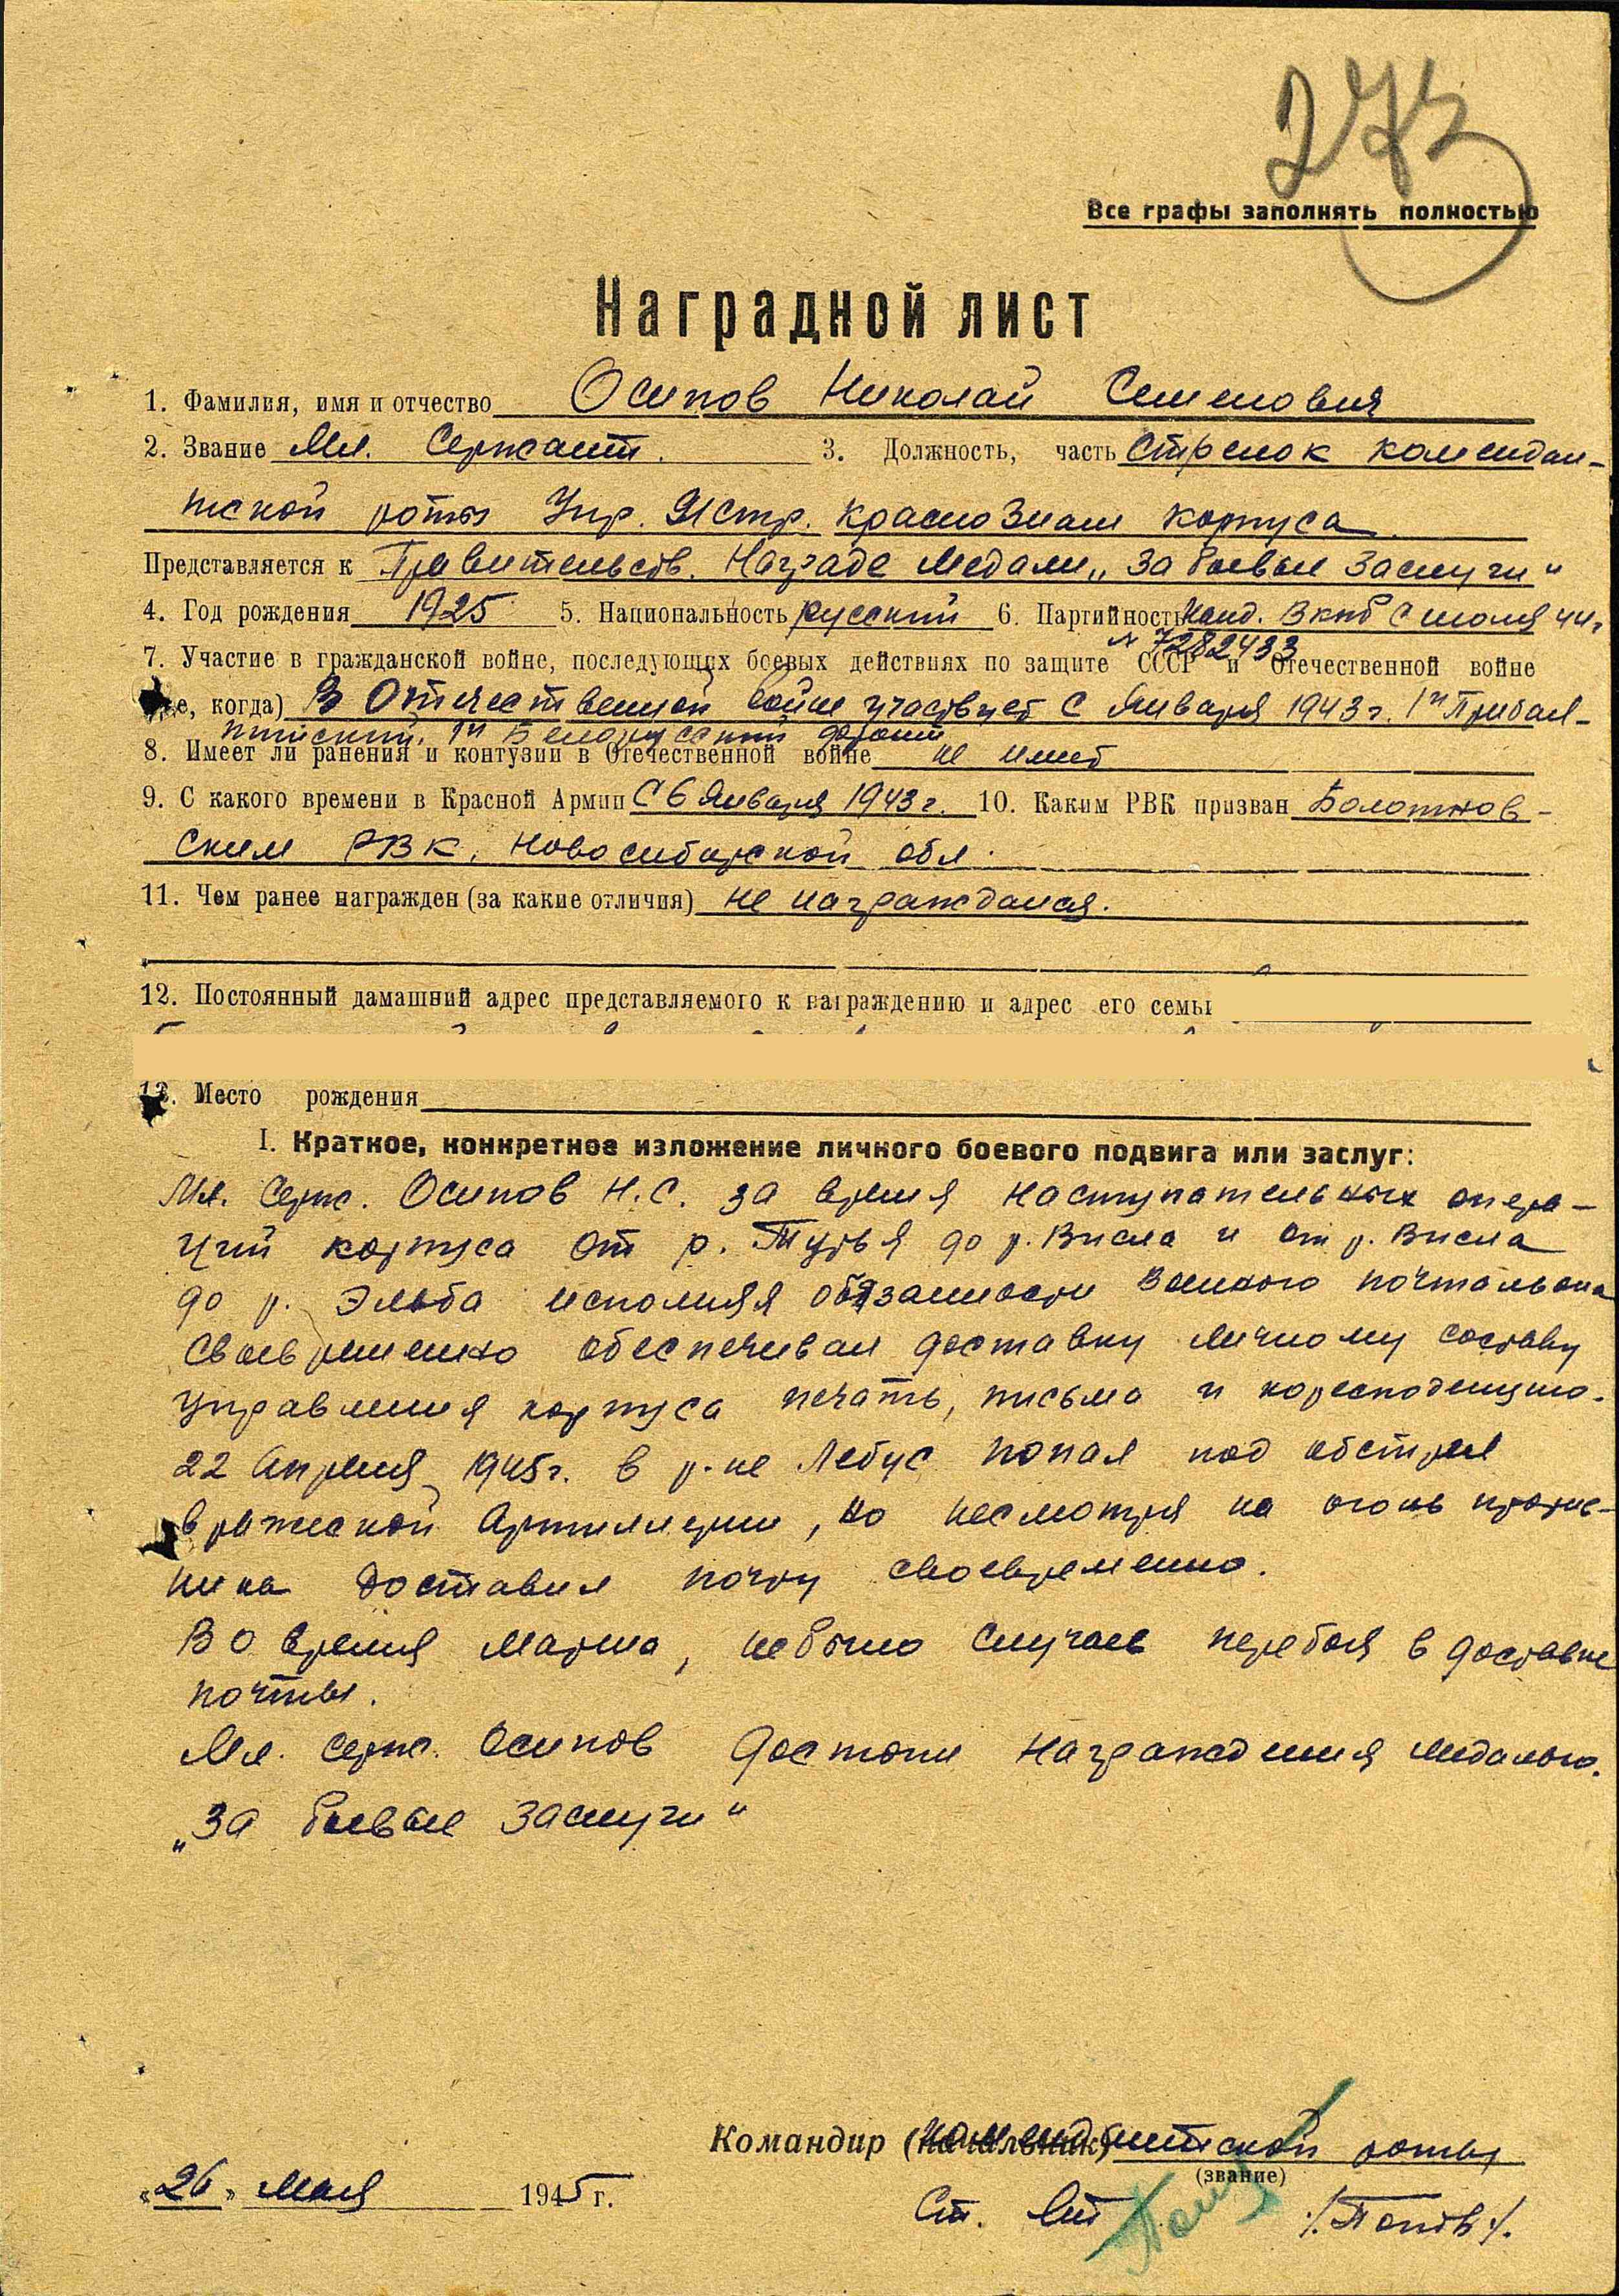 273
Все графы заполнять полностью
Наградной лист
1. Фамилия, имя и отчество Осипов Николай Семенович
2. Звание Мл. Сержант. 3. Должность, часть Стрелок комендан-
тской роты Упр. 91 стр. краснознам корпуса.
Представляется к Правительств. Награде Медали „За боевые заслуги“
4. Год рождения 1925 5. Национальность русский 6. Партийность Канд. ВКПб с июля 44г
N 7282433
7. Участие в гражданской войне, последующих боевых действиях по защите СССР и Отечественной войне
е, когда) В Отечественной войне участвует с Января 1943 г. 1й Прибал-
тийский, 1й Белорусский фронт
8. Имеет ли ранения и контузии в Отечественной войне не имеет
9. С какого времени в Красной Армии С 6 Января 1943 г. 10. Каким РВК призван Болотнов-
ским РВК, Новосибирской обл.
11. Чем ранее награжден (за какие отличия) не награждался.
12. Постоянный дамашний адрес представляемого к награждению и адрес его семьи
13. Место рождения
I. Краткое, конкретное изложение личного боевого подвига или заслуг:
Мл. Серж. Осипов Н.С. за время наступательных опера-
ций корпуса от р. Турья до р. Висла и от р. Висла
до р. Эльба исполняя обязанности военного почтальона
своевременно обеспечивал доставку личному составу
управления корпуса печать, письма и коресподенцию.
22 Апреля 1945г. в р-не Лебус попал под обстрел
вражеской Артиллерии, но несмотря на огонь против-
ника доставил почту своевременно.
Во время марша, небыло случаев перебоя в доставке
почты.
Мл. серж. Осипов достоин награждения медалью.
„За боевые заслуги“
Командир (начальник) комендантской роты
(звание)
«26» мая 1945 г.
Ст. Л-т /Попов/.